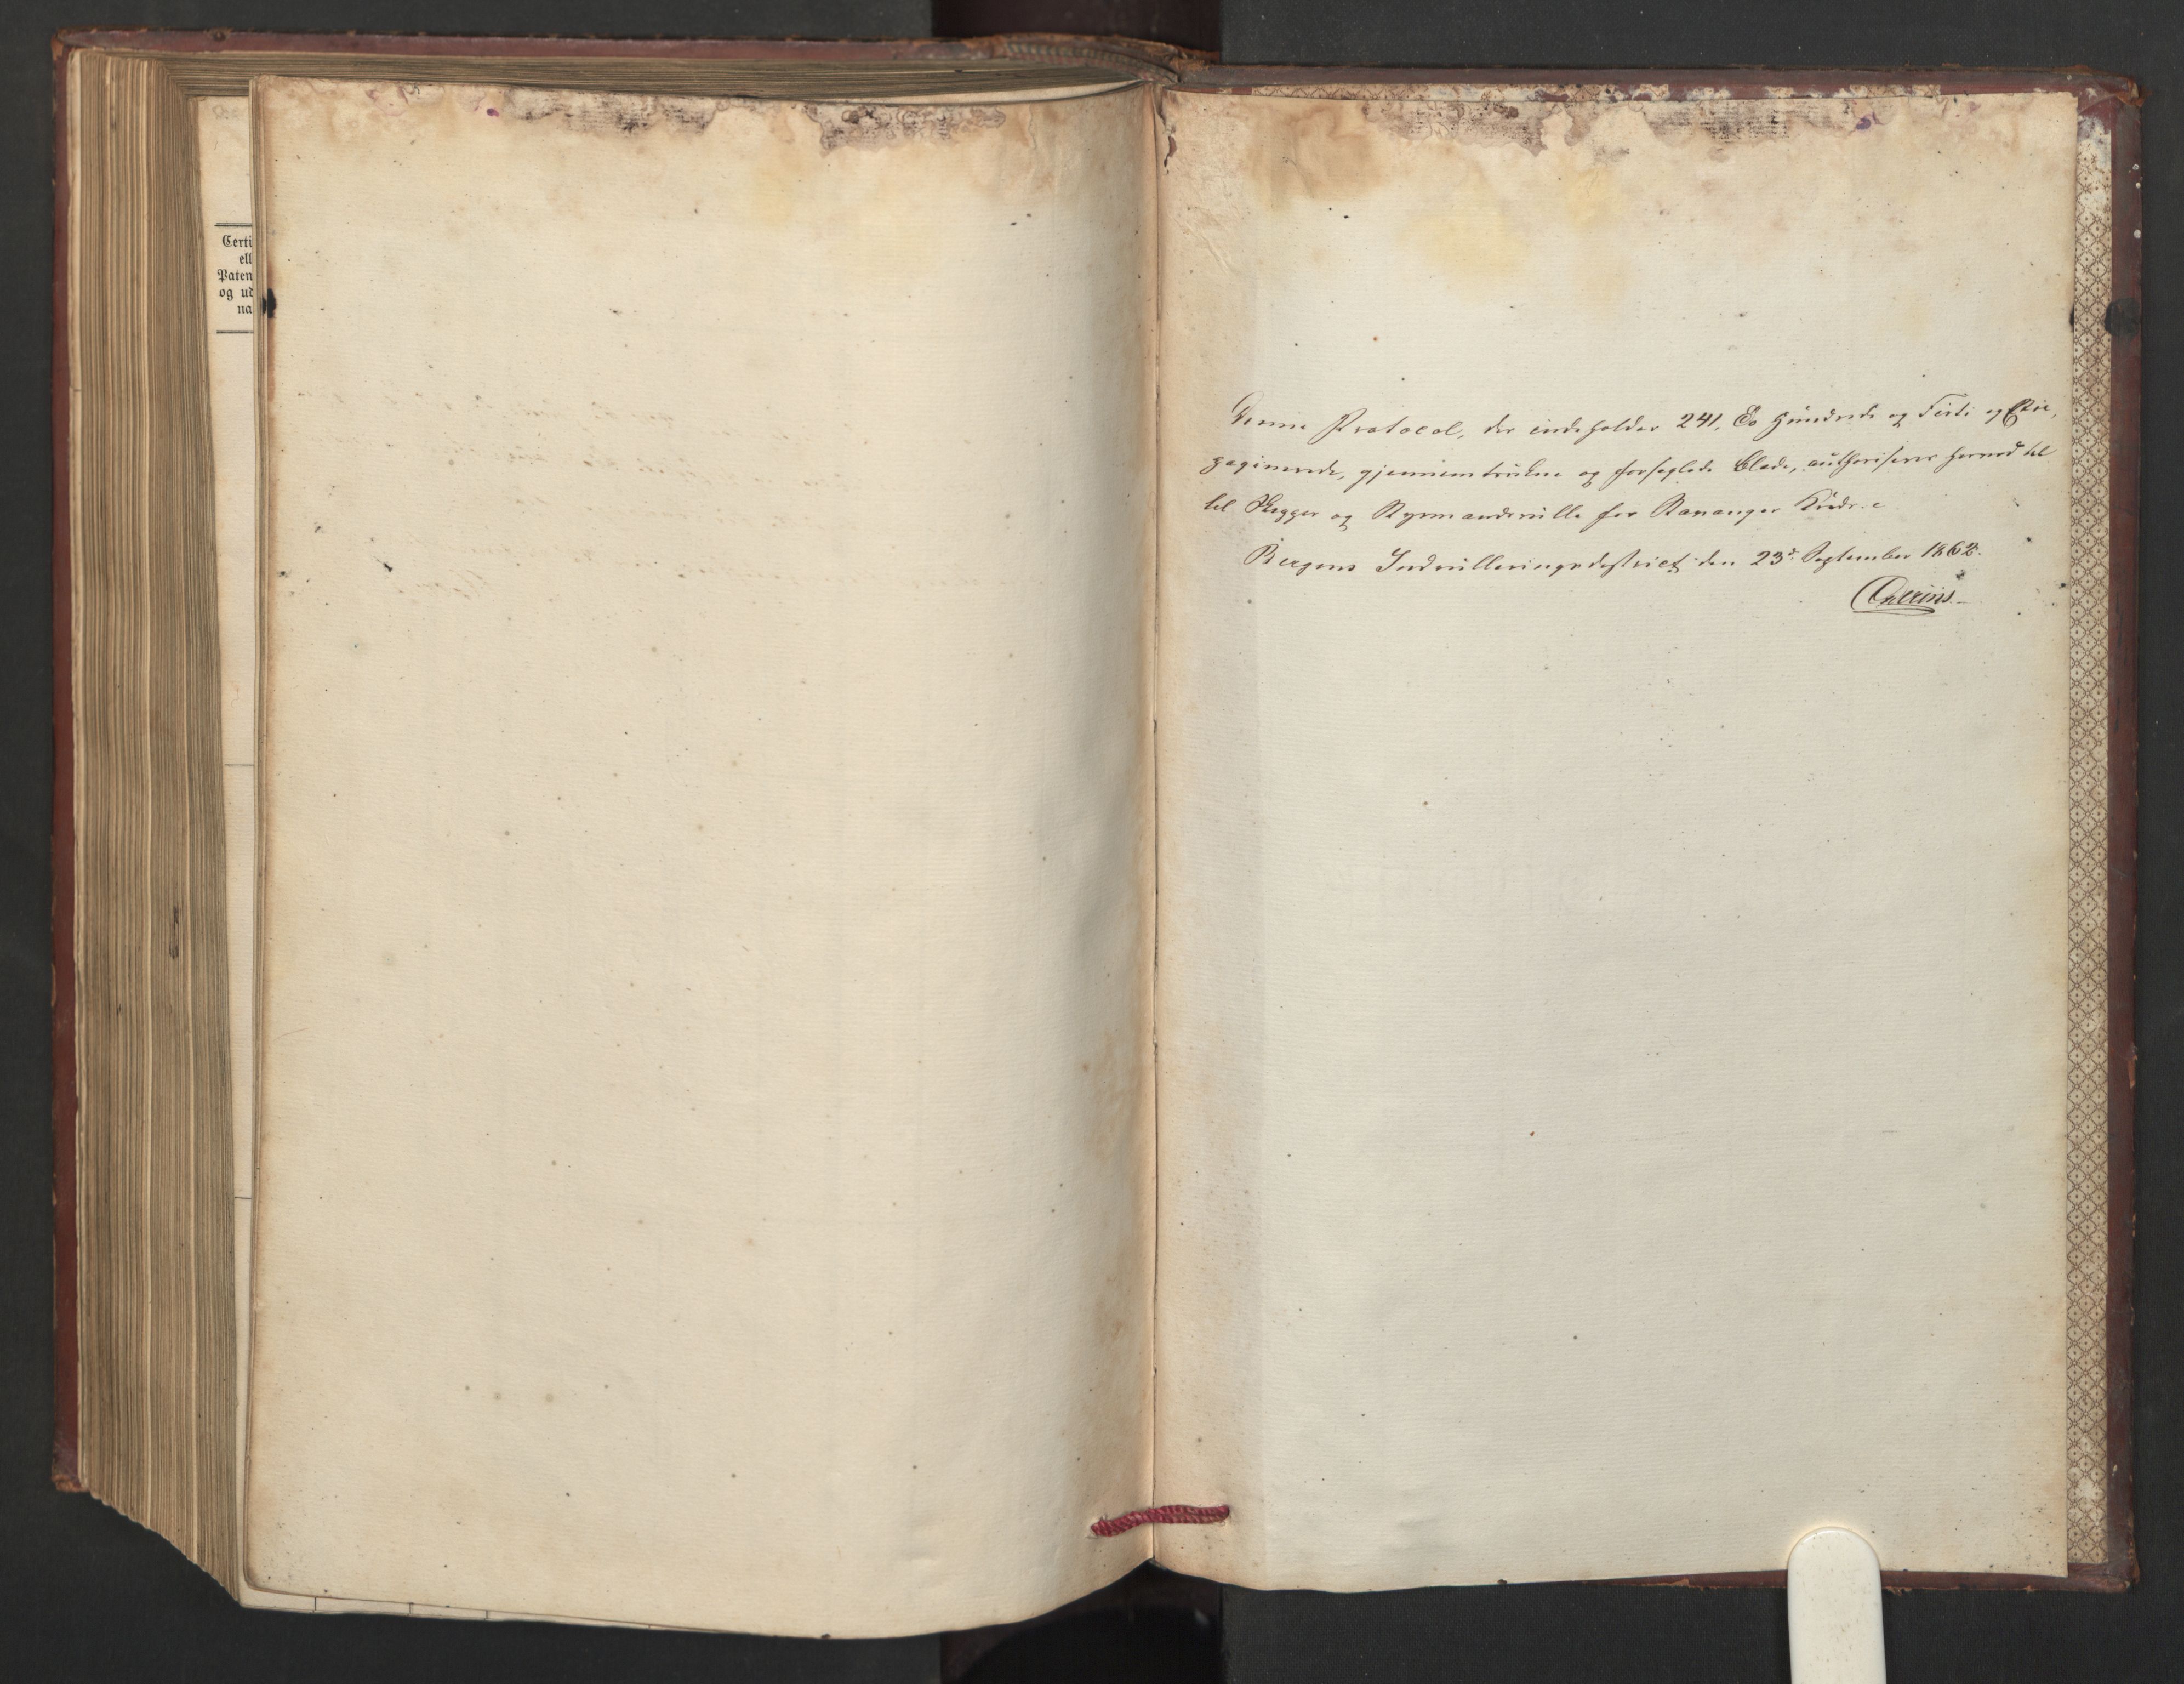 Certi
ell
Paten
og ud
na
Denne Protocol, der indeholder 241, To Hundrede og Firti og Een,
paginerede, gjennemtrukne og forseglede Blade, authoriseres herved til
til Skipper og Styrmandsrulle for Stavanger Kreds.
Bergens Indrulleringsdistrict den 23de September 1862.